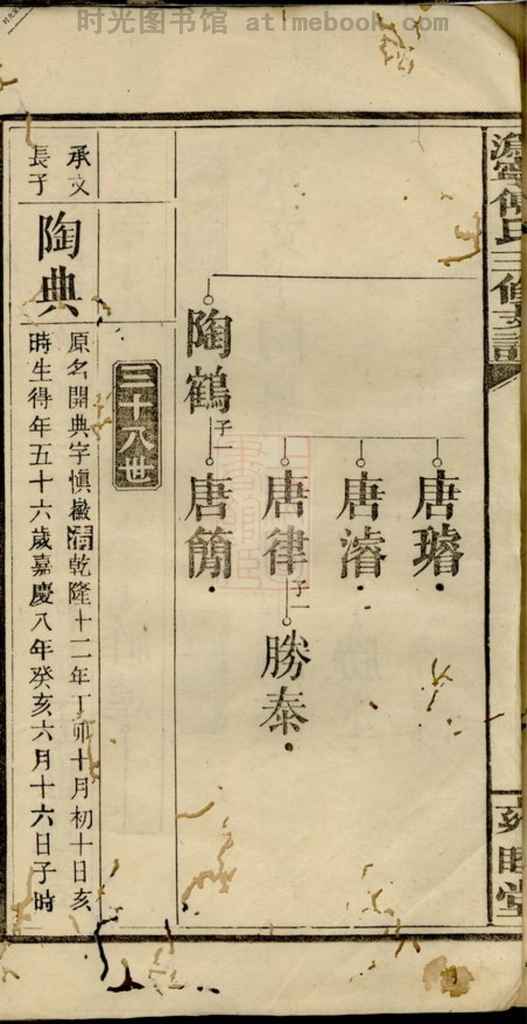 时光图书馆 atimebook.com
傅氏三修支譜
睦堂
唐璿
唐濬
唐律 子一 勝泰
陶鶴 子一 唐簡
三十八世
承文
長子
陶典
原名開典字慎徽 乾隆十二年丁卯十月初十日亥
時生得年五十六歲嘉慶八年癸亥六月十六日子時